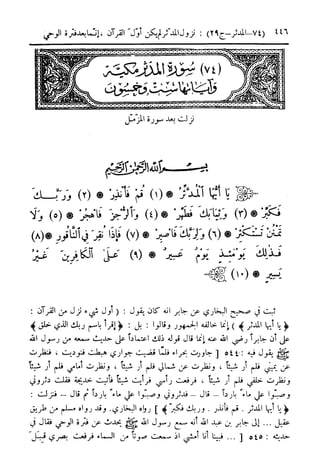 ٤٤٦ (٧٤ – المدثر – ج ٢٩) : نزول المدثر لم يكن أول القرآن ، إنما بعد فترة الوحي
(٧٤) سورة المدثر مكية
وآياتها ست وخمسون
نزلت بعد سورة المزمل
بسم الله الرحمن الرحيم
يا أيها المدثر * (١) قم فأنذر * (٢) وربك
فكبر * (٣) وثيابك فطهر * (٤) والرجز فاهجر * (٥) ولا
تمنن تستكثر * (٦) ولربك فاصبر * (٧) فإذا نقر في الناقور * (٨)
فذلك يومئذ يوم عسير * (٩) على الكافرين غير
يسير * (١٠)
ثبت في صحيح البخاري عن جابر انه كان يقول : ( أول شيء نزل من القرآن :
﴿ يا أيها المدثر ﴾ ) إنما خالفه الجمهور وقالوا : بل : ﴿ إقرأ باسم ربك الذي خلق ﴾
على أن جابراً رضي الله عنه إنما قال قوله ذلك اعتماداً على حديث سمعه من رسول الله
ﷺ يقول فيه : ٥٤٤ [ جاورت بحراء فلما قضيت جواري هبطت فنوديت ، فنظرت
عن يميني فلم أر شيئاً ، ونظرت عن شمالي فلم أر شيئاً ، ونظرت أمامي فلم أر شيئاً
ونظرت خلفي فلم أر شيئاً ، فرفعت رأسي فرأيت شيئاً فأتيت خديجة فقلت دثروني
وصبوا علي ماءً بارداً – قال – فدثروني وصبوا علي ماءً بارداً ثم قال – فنزلت :
﴿ يا أيها المدثر . قم فأنذر . وربك فكبر ﴾ ] رواه البخاري. وقد رواه مسلم من طريق
عقيل ... إلى جابر بن عبد الله أنه سمع رسول الله ﷺ يحدث عن فترة الوحي فقال في
حديثه : ٥٤٥ [ ... فبينا أنا أمشي اذ سمعت صوتاً من السماء فرفعت بصري قبل